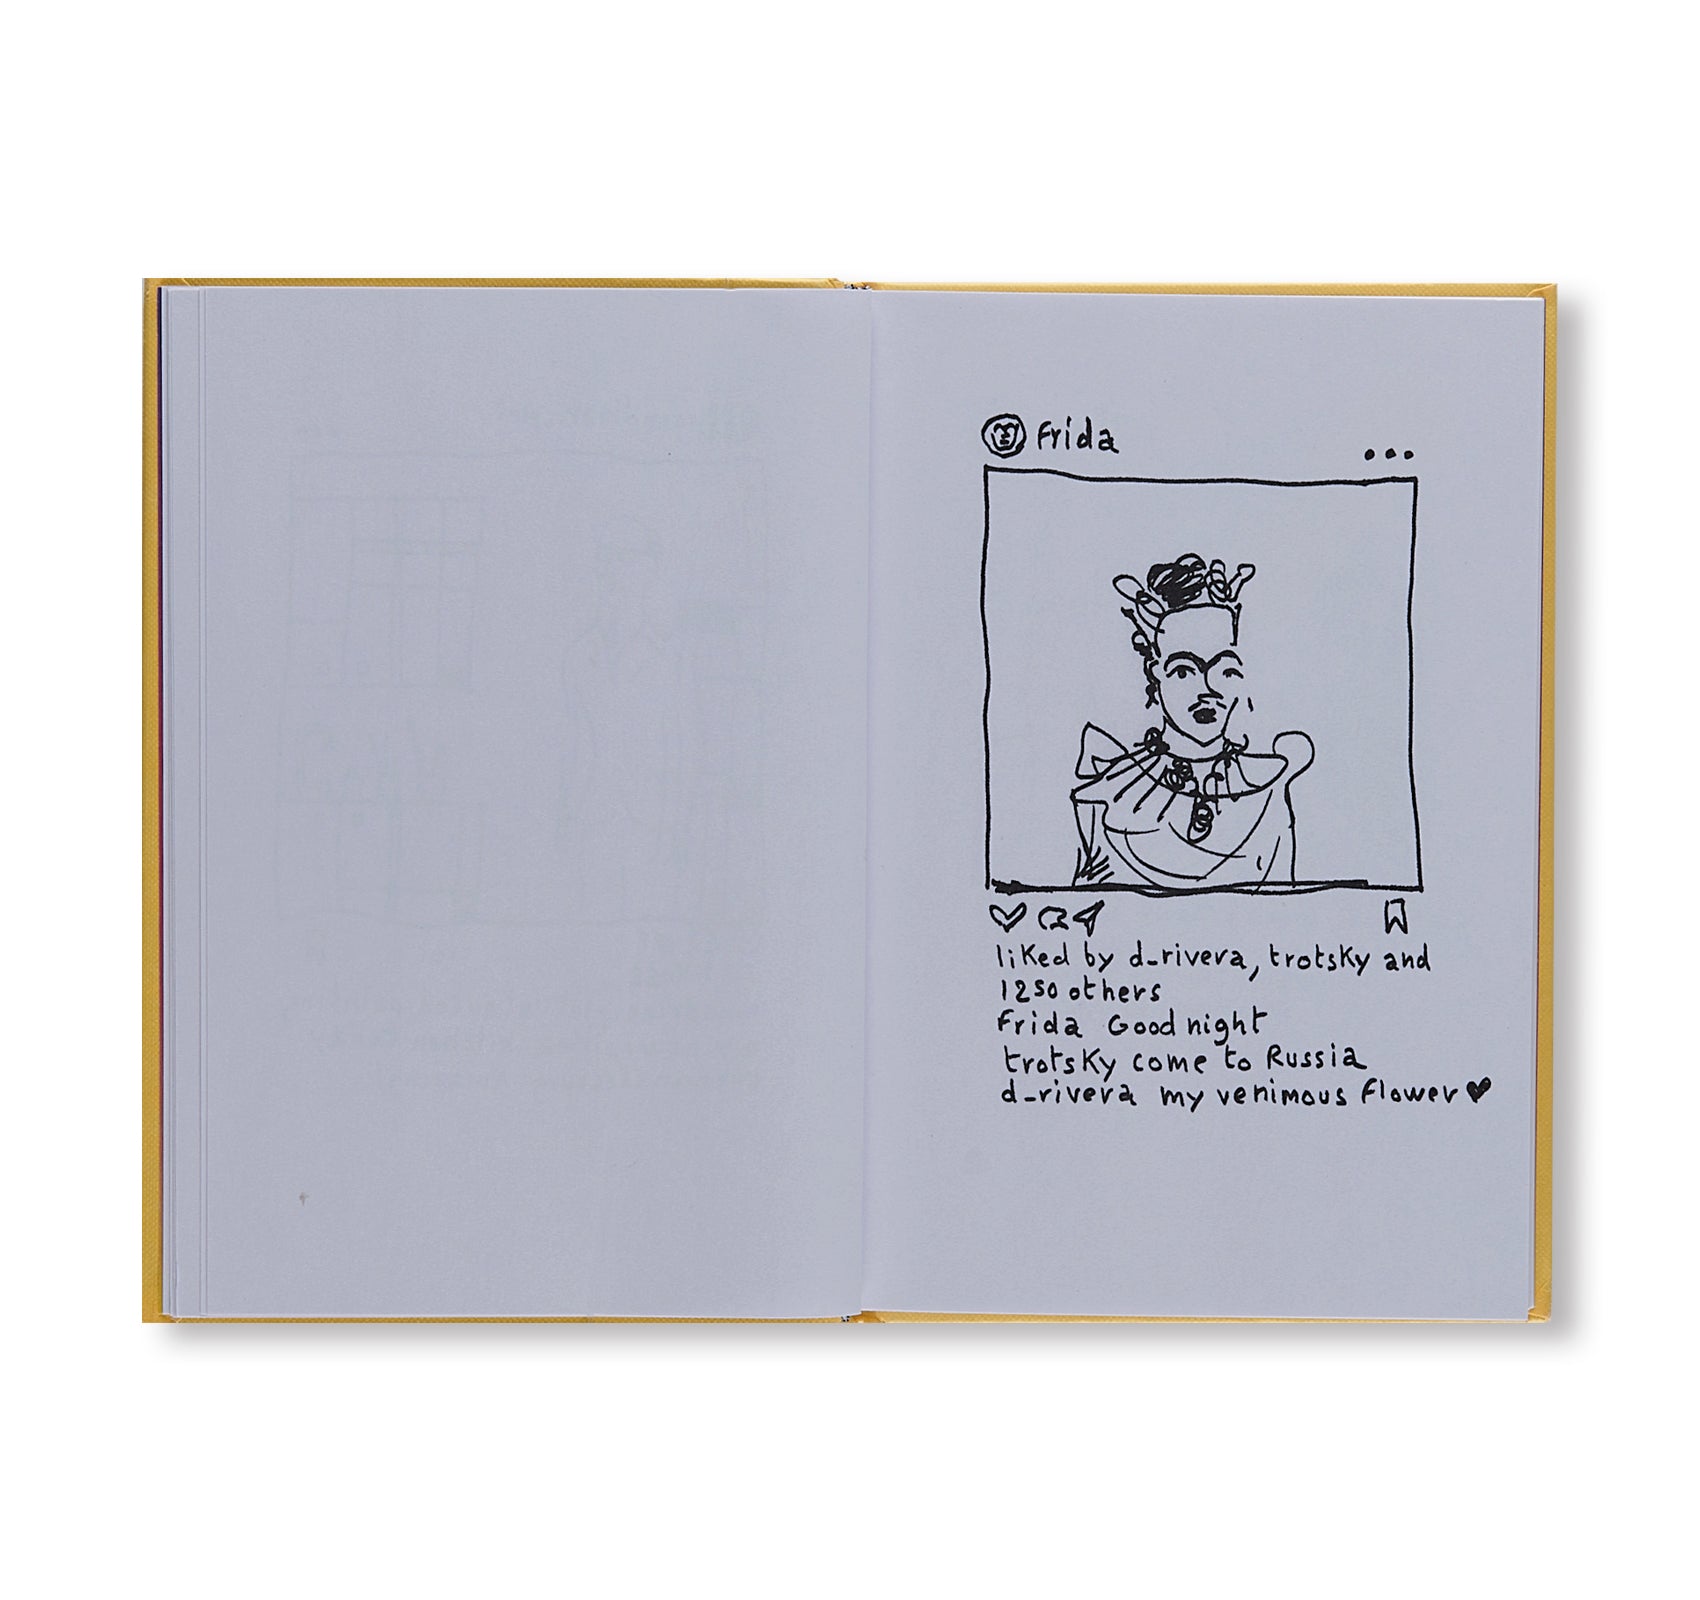 Frida
liked by d_rivera, trotsky and
1250 others
Frida Good night
trotsky come to Russia
d_rivera my venimous flower